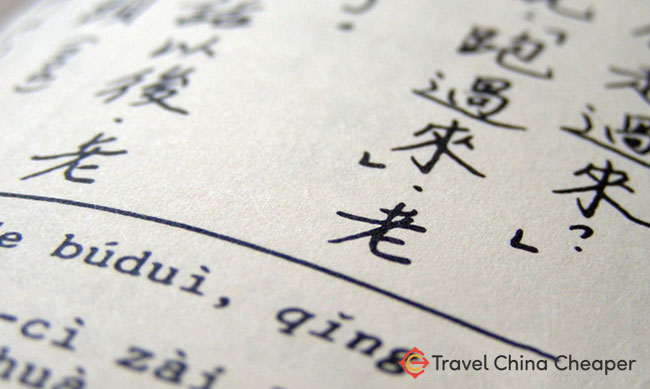 過來」?
「跑過來」,老
?
以後,老
búduì, qǐng
-cì zài
huà
Travel China Cheaper